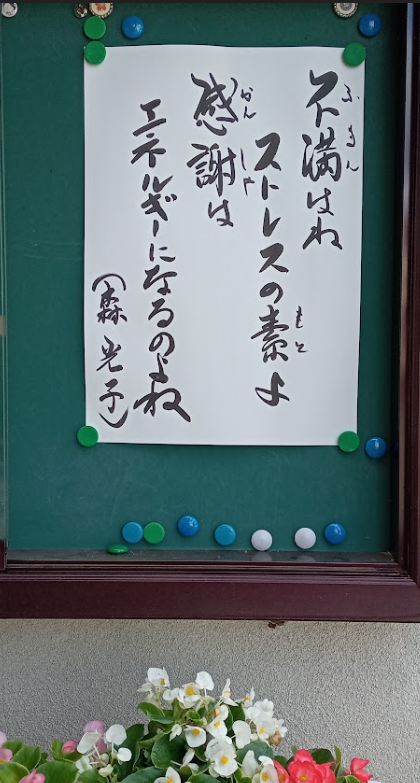 不満はね
ストレスの素よ
感謝は
エネルギーになるのよね
(森光子)